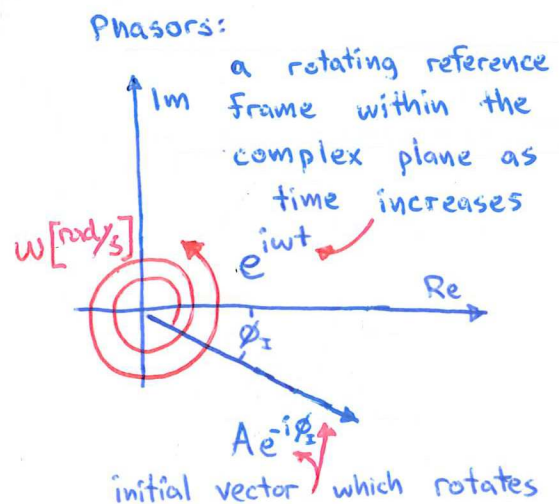 Phasors:
a rotating reference
Im frame within the
complex plane as
time increases
ω[rad/s]
e^{iωt}
Re
ϕ_I
Ae^{-iϕ_I}
initial vector which rotates